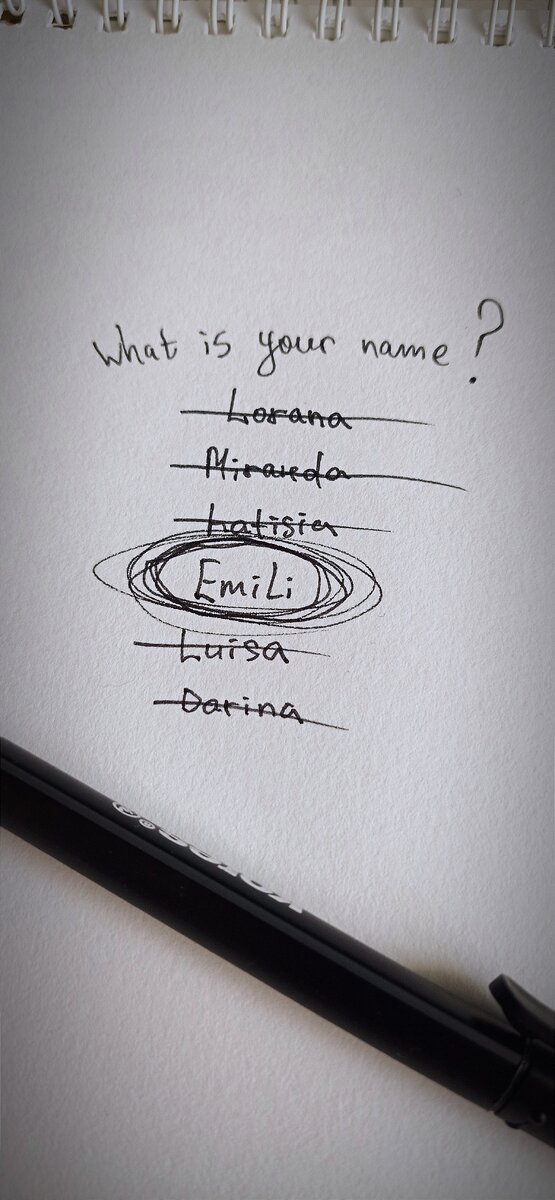 What is your name?
Lorana
Miranda
Latisia
EmiLi
Luisa
Darina